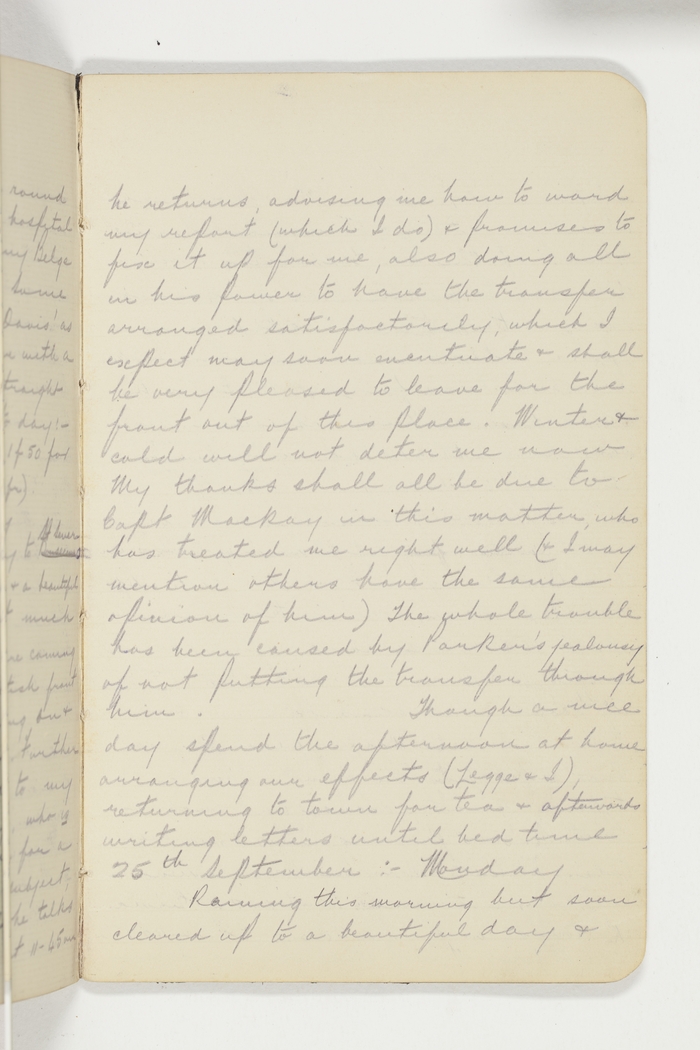 round
hospital
my Belge
some
Davis' as
with a
straight
day:-
1f 50 for
& a beautiful
much
coming
front
on &
further
to my
who is
for a
subject,
he talks
at 11-45
he returns, advising me how to word
my report (which I do) & promises to
fix it up for me, also doing all
in his power to have the transfer
arranged satisfactorily, which I
expect may soon eventuate & shall
be very pleased to leave for the
front out of this place. Winter &
cold will not deter me now
My thanks shall all be due to
Capt Mackay in this matter, who
has treated me right well (& I may
mention others have the same
opinion of him) The whole trouble
has been caused by Parker's jealousy
of not putting the transfer through
him. Though a nice
day spend the afternoon at home
arranging our effects (Legge & I),
returning to town for tea & afterwards
writing letters until bed time
25th September :- Monday
Raining this morning but soon
cleared up to a beautiful day &